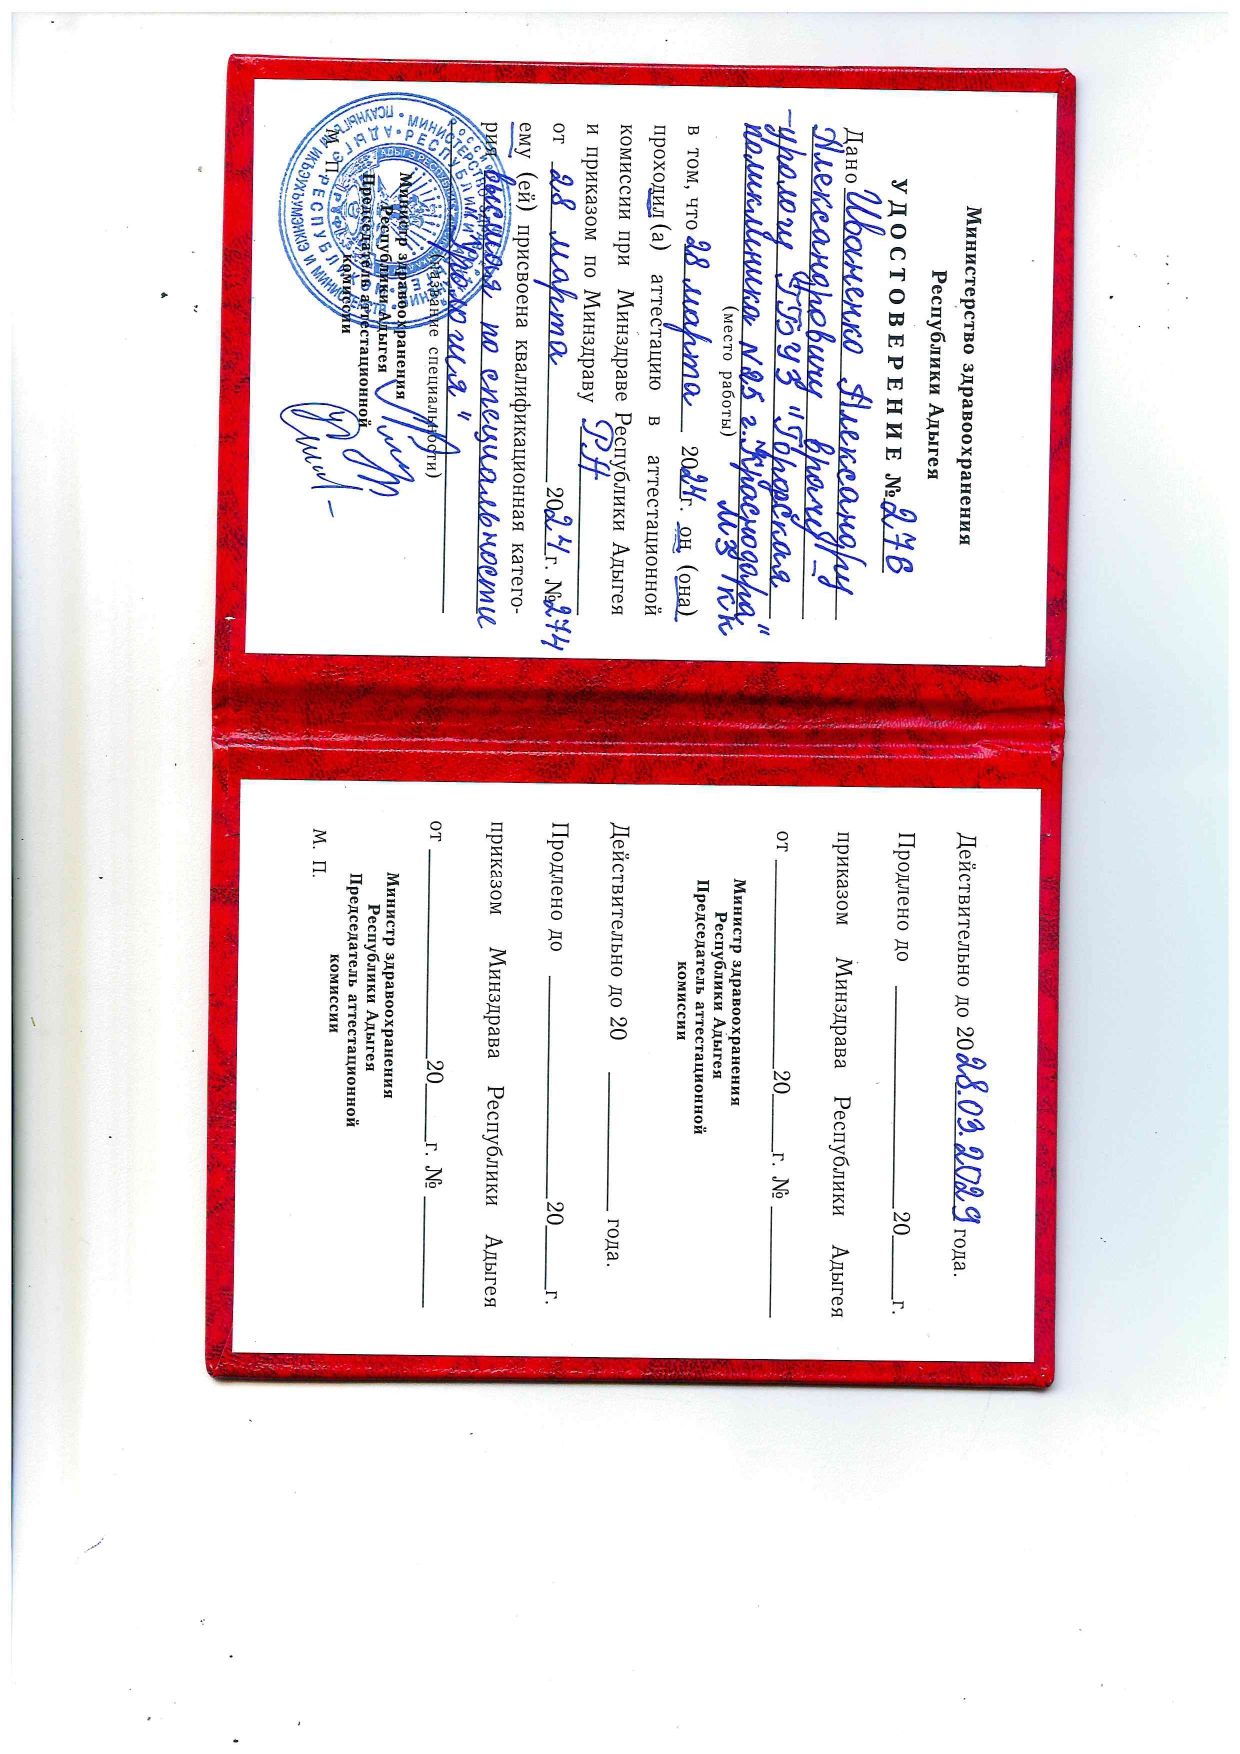 Министерство здравоохранения
Республики Адыгея
УДОСТОВЕРЕНИЕ № 276
Дано Иваненко Александру
Александровичу врачу-
-урологу ГБУЗ "Городская
поликлиника №25 г. Краснодара"
(место работы) МЗ КК
в том, что 28 марта 2024г. он (она)
проходил(а) аттестацию в аттестационной
комиссии при Минздраве Республики Адыгея
и приказом по Минздраву РА
от 28 марта 2024 г. №274
ему (ей) присвоена квалификационная катего-
рия высшая по специальности
"Урология"
(название специальности)
Министр здравоохранения
Республики Адыгея
Председатель аттестационной
комиссии
М. П.
Действительно до 2028.03.2029 года.
Продлено до 20 г.
приказом Минздрава Республики Адыгея
от 20 г. №
Министр здравоохранения
Республики Адыгея
Председатель аттестационной
комиссии
Действительно до 20 года.
Продлено до 20 г.
приказом Минздрава Республики Адыгея
от 20 г. №
Министр здравоохранения
Республики Адыгея
Председатель аттестационной
комиссии
М. П.